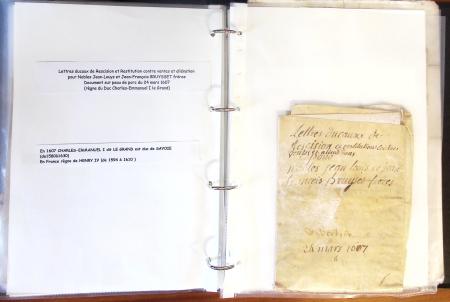 Lettres ducaux de Rescision et Restitution contre ventes et aliénation
pour Nobles Jean-Louys et Jean-François BRUYSSET frères
Document sur peau de porc du 24 mars 1607
(règne du Duc Charles-Emmanuel I le Grand)
En 1607 CHARLES-EMMANUEL I dit LE GRAND est duc de SAVOIE
(de1580à1630)
En France règne de HENRY IV (de 1594 à 1610 )
Lettres ducaux de
Rescision et restitution
nobles jean louis et jean
françois bruysset freres
24 mars 1607